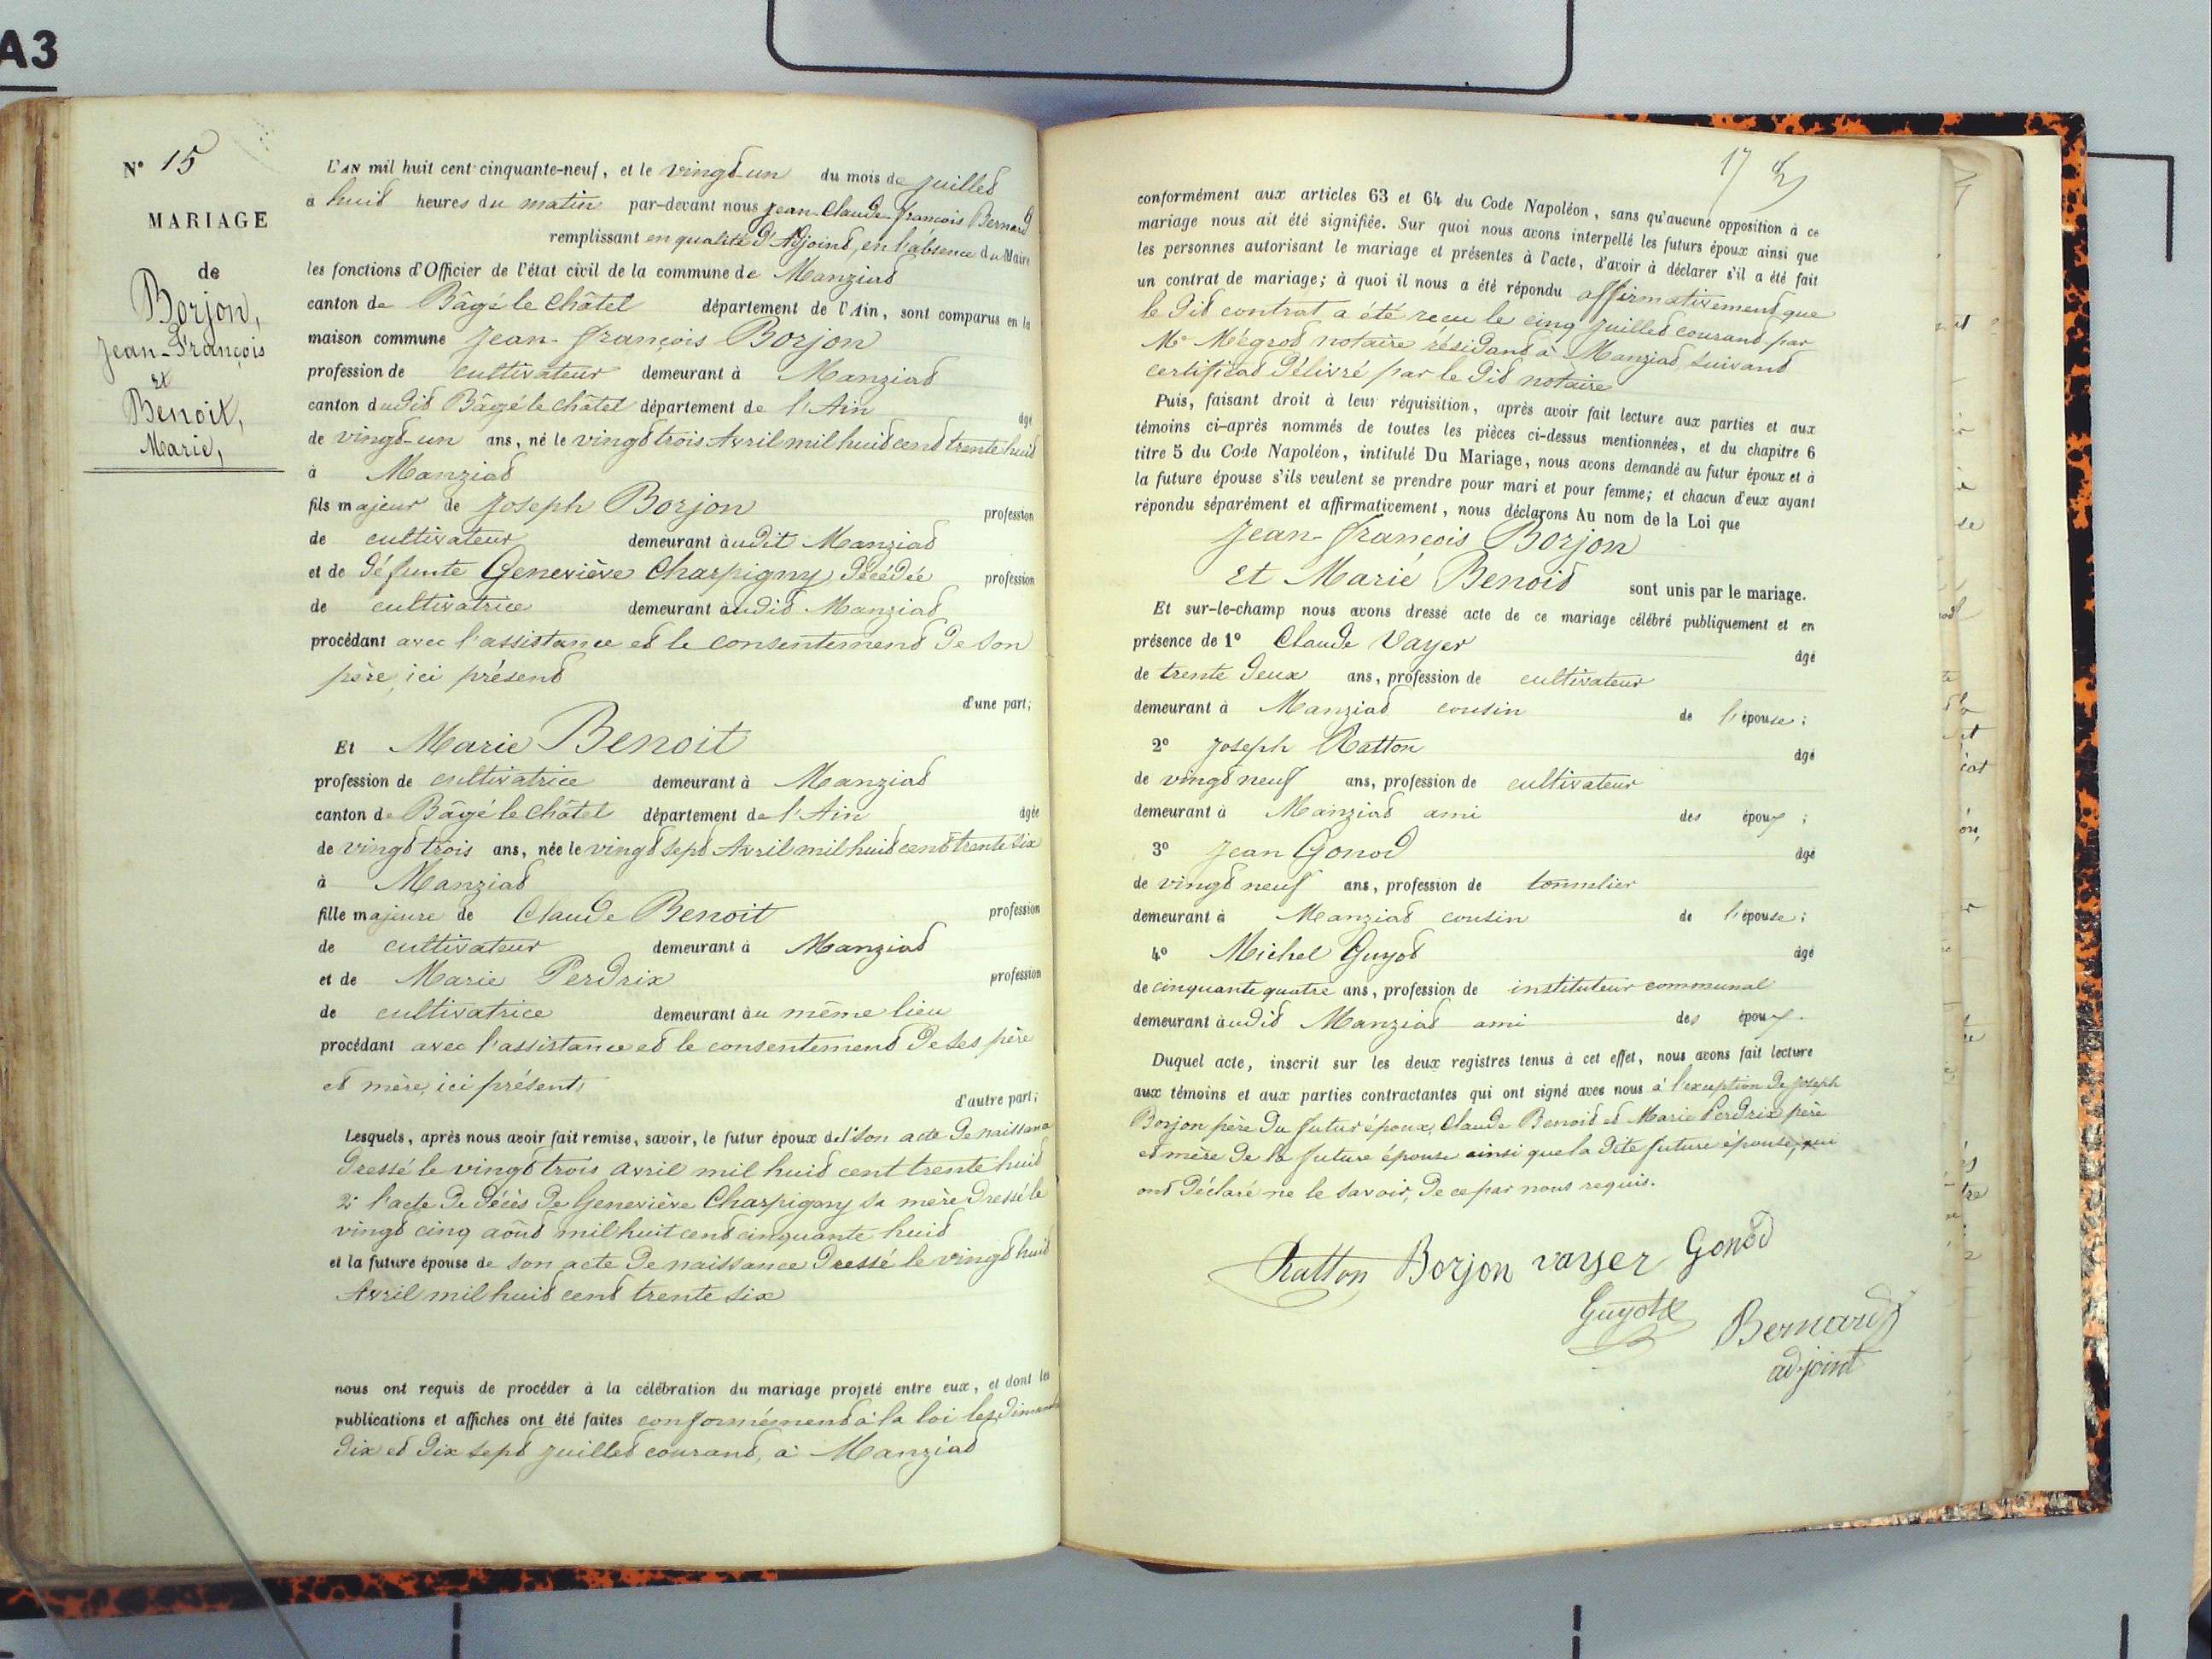 A3
N° 15
MARIAGE
de
Borjon,
Jean-François
et
Benoit,
Marie,
L'AN mil huit cent cinquante-neuf, et le vingt-un du mois de juillet
à huit heures du matin par-devant nous Jean-Claude-françois Bernard
remplissant en qualité d'Adjoint, en l'absence du Maire
les fonctions d'Officier de l'état civil de la commune de Manziat
canton de Bâgé le Châtel département de l'Ain, sont comparus en la
maison commune Jean-françois Borjon
profession de cultivateur demeurant à Manziat
canton dudit Bâgé le Châtel département de l'Ain âgé
de vingt-un ans, né le vingt trois Avril mil huit cent trente huit
à Manziat
fils majeur de Joseph Borjon profession
de cultivateur demeurant audit Manziat
et de défunte Geneviève Charpigny décédée profession
de cultivatrice demeurant audit Manziat
procédant avec l'assistance et le consentement de son
père, ici présent
d'une part;
Et Marie Benoit
profession de cultivatrice demeurant à Manziat
canton de Bâgé le Châtel département de l'Ain âgée
de vingt trois ans, née le vingt sept Avril mil huit cent trente six
à Manziat
fille majeure de Claude Benoit profession
de cultivateur demeurant à Manziat
et de Marie Perdrix profession
de cultivatrice demeurant au même lieu
procédant avec l'assistance et le consentement de ses père
et mère, ici présents
d'autre part;
Lesquels, après nous avoir fait remise, savoir, le futur époux de 1° son acte de naissance
dressé le vingt trois avril mil huit cent trente huit
2° l'acte de décès de Geneviève Charpigny sa mère dressé le
vingt cinq août mil huit cent cinquante huit
et la future épouse de son acte de naissance dressé le vingt huit
Avril mil huit cent trente six
nous ont requis de procéder à la célébration du mariage projeté entre eux, et dont les
publications et affiches ont été faites conformément à la loi les dimanches
dix et dix sept juillet courant, à Manziat
17
conformément aux articles 63 et 64 du Code Napoléon, sans qu'aucune opposition à ce
mariage nous ait été signifiée. Sur quoi nous avons interpellé les futurs époux ainsi que
les personnes autorisant le mariage et présentes à l'acte, d'avoir à déclarer s'il a été fait
un contrat de mariage; à quoi il nous a été répondu affirmativement que
le dit contrat a été reçu le cinq juillet courant par
Me Mégrot notaire résidant à Manziat, suivant
certificat délivré par le dit notaire
Puis, faisant droit à leur réquisition, après avoir fait lecture aux parties et aux
témoins ci-après nommés de toutes les pièces ci-dessus mentionnées, et du chapitre 6
titre 5 du Code Napoléon, intitulé Du Mariage, nous avons demandé au futur époux et à
la future épouse s'ils veulent se prendre pour mari et pour femme; et chacun d'eux ayant
répondu séparément et affirmativement, nous déclarons Au nom de la Loi que
Jean-françois Borjon
et Marie Benoit sont unis par le mariage.
Et sur-le-champ nous avons dressé acte de ce mariage célébré publiquement et en
présence de 1° Claude Vayer âgé
de trente deux ans, profession de cultivateur
demeurant à Manziat cousin de l'épouse;
2° Joseph Ratton âgé
de vingt neuf ans, profession de cultivateur
demeurant à Manziat ami des époux;
3° Jean Gonod âgé
de vingt neuf ans, profession de tonnelier
demeurant à Manziat cousin de l'épouse;
4° Michel Guyot âgé
de cinquante quatre ans, profession de instituteur communal
demeurant audit Manziat ami des époux.
Duquel acte, inscrit sur les deux registres tenus à cet effet, nous avons fait lecture
aux témoins et aux parties contractantes qui ont signé avec nous à l'exception de Joseph
Borjon père du futur époux, Claude Benoit et Marie Perdrix père
et mère de la future épouse ainsi que la dite future épouse, qui
ont déclaré ne le savoir, de ce par nous requis.
Ratton Borjon vayer Gonod
Guyot
Bernard
adjoint